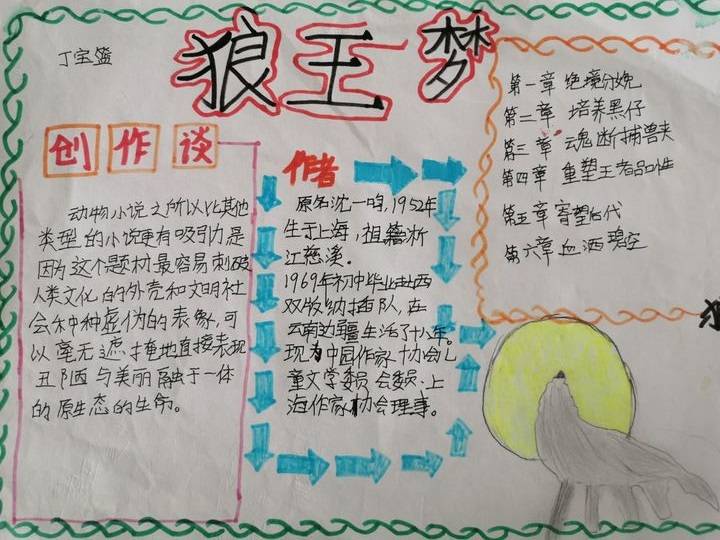 丁宝篮
狼王梦
创作谈
动物小说之所以比其他
类型的小说更有吸引力是
因为这个题材最容易刺破
人类文化的外壳和文明社
会种种虚伪的表象,可
以毫无遮掩地直接表现
丑陋与美丽融于一体
的原生态的生命。
作者
原名沈一鸣,1952年
生于上海,祖籍浙
江慈溪。
1969年初中毕业赴西
双版纳插队,在
云南边疆生活了十八年。
现为中国作家协会儿
童文学委员会委员、上
海作家协会理事。
第一章 绝境分娩
第二章 培养黑仔
第三章 魂断捕兽夹
第四章 重塑王者品性
第五章 寄望后代
第六章 血洒碧空